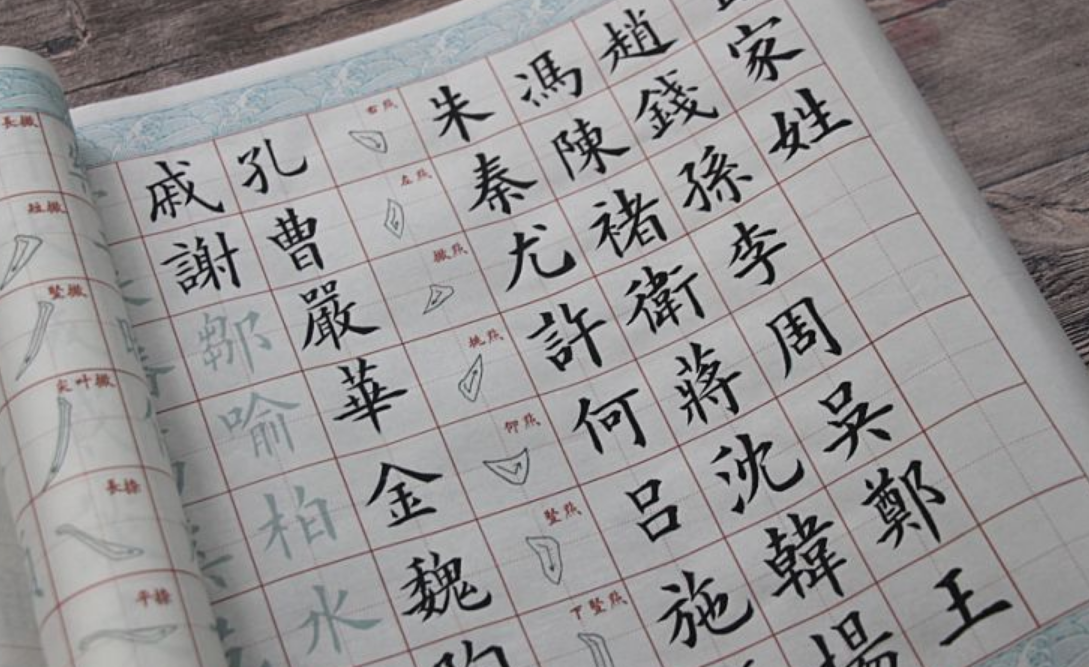 家姓
趙錢孫李周吳鄭王
馮陳褚衛蔣沈韓楊
朱秦尤許何呂施
右点
左点
撇点
挑点
仰点
竪点
下竪点
孔曹嚴華金魏陶
戚謝鄒喻柏水
長撇
短撇
竪撇
尖叶撇
長捺
平捺